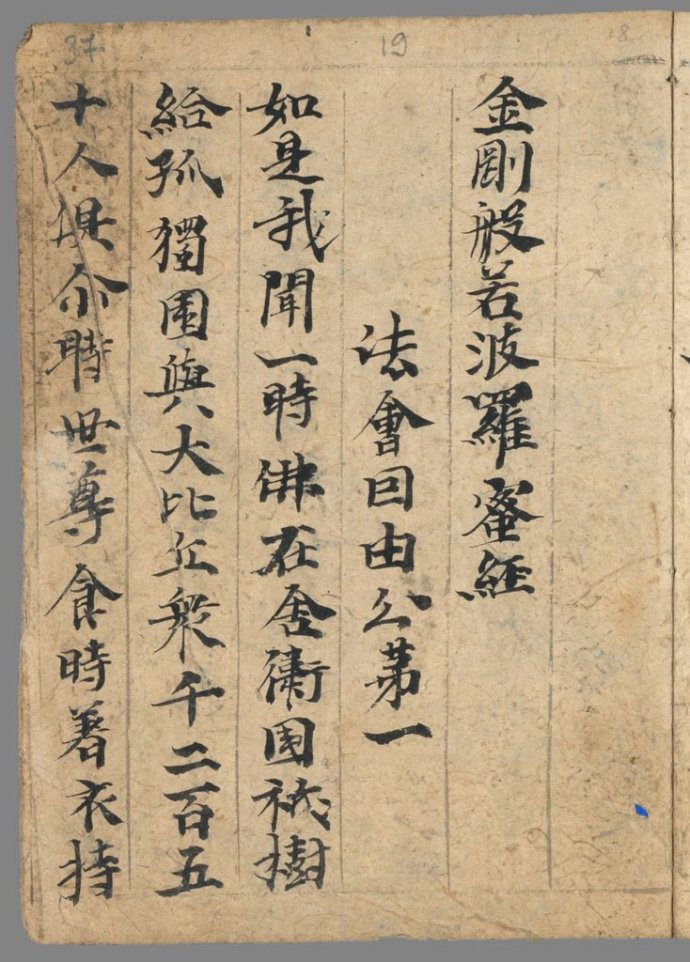 金剛般若波羅蜜經
法會囙由分第一
如是我聞一時佛在舍衛國祇樹
給孤獨園與大比丘衆千二百五
十人俱尒時世尊食時著衣持
19